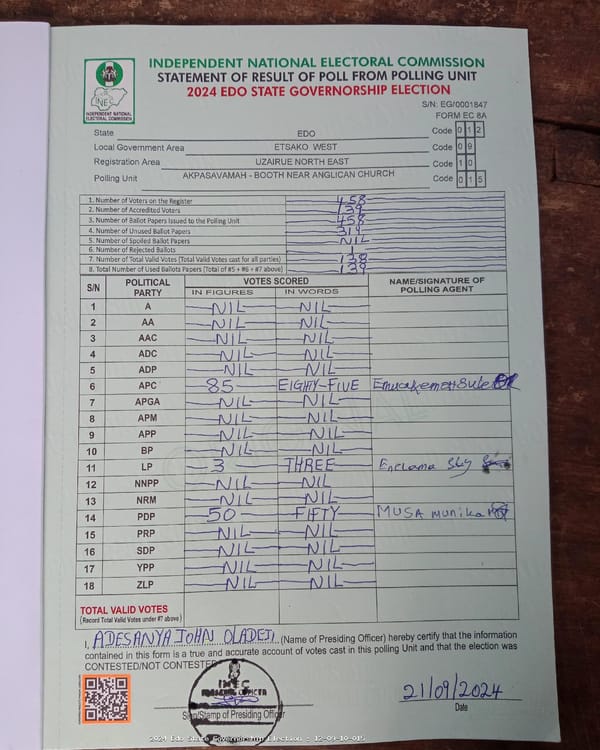 INDEPENDENT NATIONAL ELECTORAL COMMISSION
STATEMENT OF RESULT OF POLL FROM POLLING UNIT
2024 EDO STATE GOVERNORSHIP ELECTION
INEC
INDEPENDENT NATIONAL ELECTORAL COMMISSION
S/N: EG/0001847
FORM EC 8A
State EDO Code 0 1 2
Local Government Area ETSAKO WEST Code 0 9
Registration Area UZAIRUE NORTH EAST Code 1 0
Polling Unit AKPASAVAMAH - BOOTH NEAR ANGLICAN CHURCH Code 0 1 5
1. Number of Voters on the Register 458
2. Number of Accredited Voters 139
3. Number of Ballot Papers Issued to the Polling Unit 458
4. Number of Unused Ballot Papers 319
5. Number of Spoiled Ballot Papers NIL
6. Number of Rejected Ballots 1
7. Number of Total Valid Votes (Total Valid Votes cast for all parties) 138
8. Total Number of Used Ballots Papers (Total of #5 + #6 + #7 above) 139
S/N POLITICAL PARTY VOTES SCORED NAME/SIGNATURE OF POLLING AGENT
IN FIGURES IN WORDS
1 A NIL NIL
2 AA NIL NIL
3 AAC NIL NIL
4 ADC NIL NIL
5 ADP NIL NIL
6 APC 85 EIGHTY-FIVE
7 APGA NIL NIL
8 APM NIL NIL
9 APP NIL NIL
10 BP NIL NIL
11 LP 3 THREE
12 NNPP NIL NIL
13 NRM NIL NIL
14 PDP 50 FIFTY MUSA
15 PRP NIL NIL
16 SDP NIL NIL
17 YPP NIL NIL
18 ZLP NIL NIL
TOTAL VALID VOTES
(Record Total Valid Votes under #7 above)
I, ADESANYA JOHN OLADEJI (Name of Presiding Officer) hereby certify that the information
contained in this form is a true and accurate account of votes cast in this polling Unit and that the election was
CONTESTED/NOT CONTESTED
INEC
PRESIDING OFFICER
Sign/Stamp of Presiding Officer
21/09/2024
Date
2024 Edo State Governorship Election - 12-09-10-015